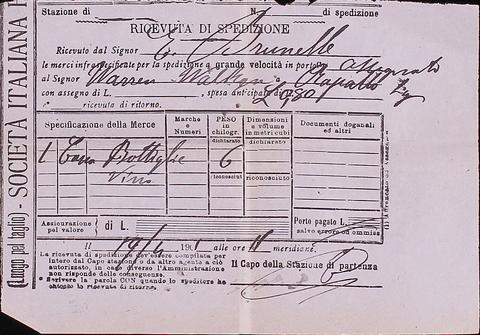 Stazione di N. di spedizione
RICEVUTA DI SPEDIZIONE
Ricevuto dal Signor E. Brunelle
le merci infraspecificate per la spedizione a grande velocità in porto assegnato
al Signor Warren Walken a Rapallo
con assegno di L. , spesa anticipata di
ricevuta di ritorno.
Specificazione della Merce
Marche e Numeri
PESO in chilogr.
Dimensioni e volume in metri cubi
Documenti doganali ed altri
dichiarato dichiarato
1 Cassa Bottiglie 6
Vino
riconosciut riconosciuto
Assicurazione pel valore di L.
Porto pagato L.
salvo errore od ommiss
Il 190 alle ore meridiane.
La ricevuta di spedizione dev'essere compilata per
intero dal Capo stazione o da altro agente a ciò
autorizzato, in caso diverso l'Amministrazione
non risponde delle conseguenze.
Scrivere la parola CON quando lo speditore ha
chiesto la ricevuta di ritorno.
Il Capo della Stazione di partenza
(Luogo pel taglio) - SOCIETÀ ITALIANA